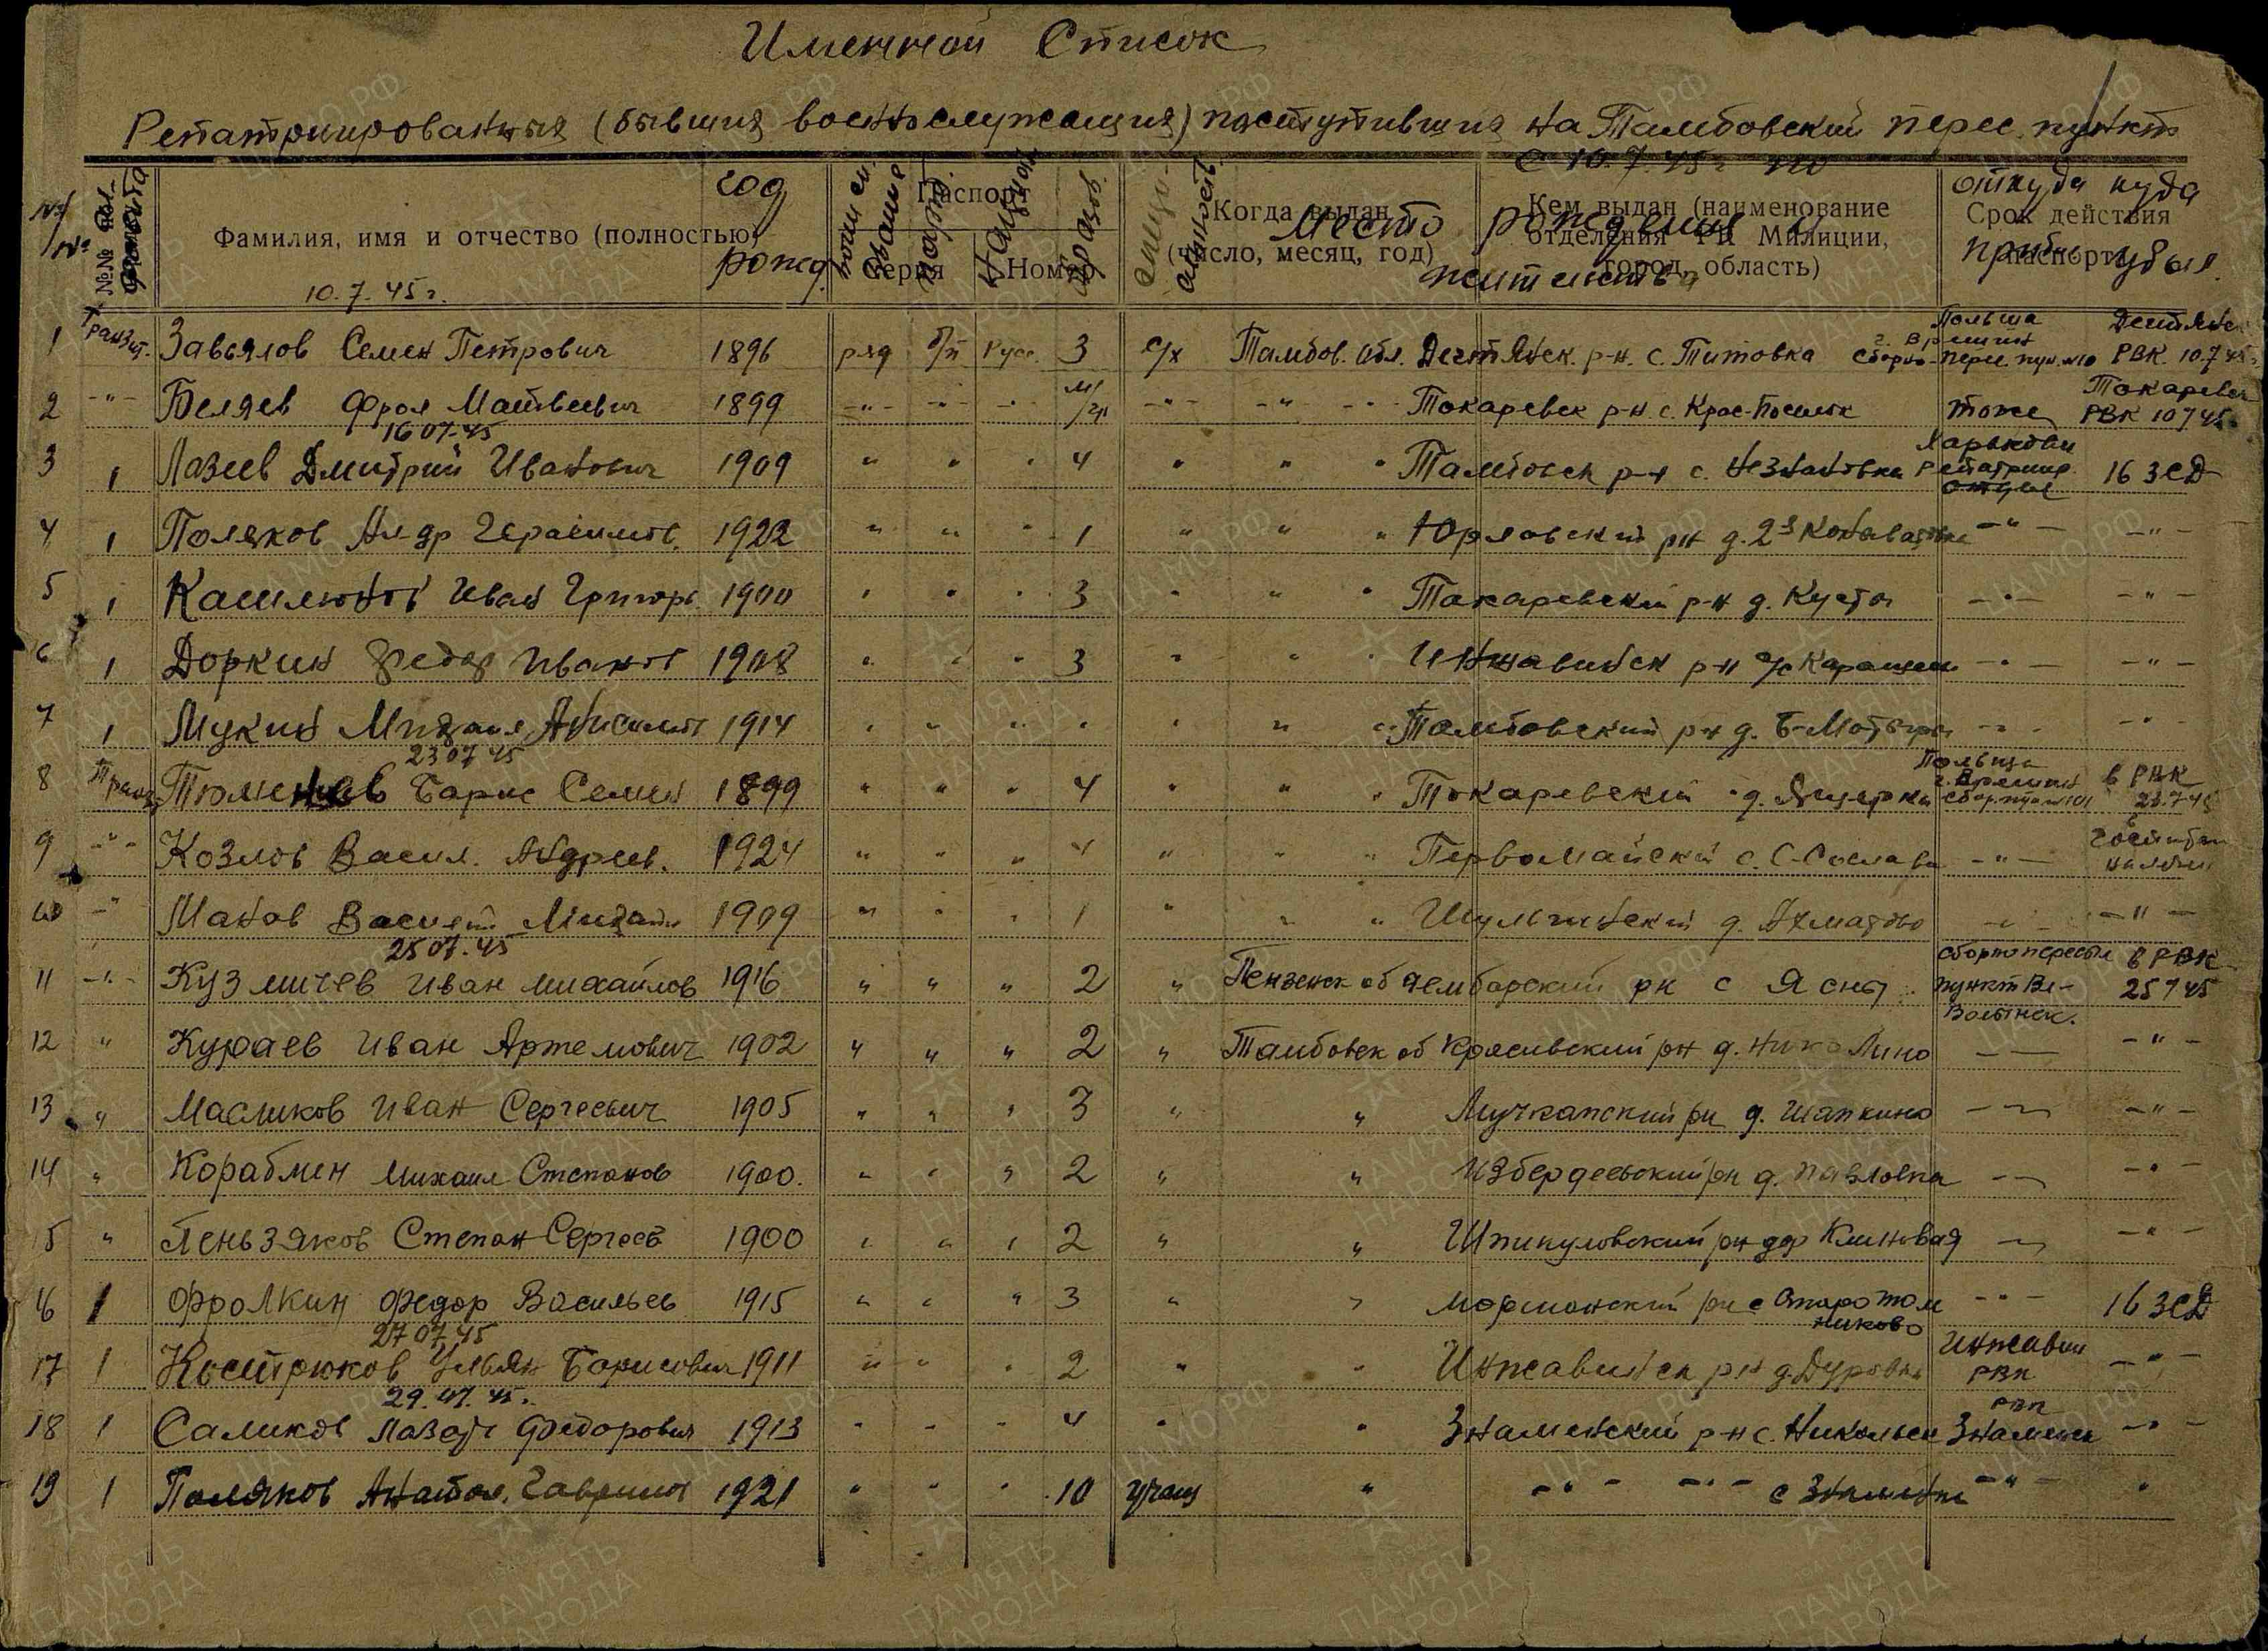 Именной Список
Репатрированных (бывших военнослужащих) поступивших на Тамбовский перес. пункт
с 10.7.45г по
№/№ №№ Фамилия, имя и отчество (полностью) год рожд. звание парт. Паспорт Серия Номер национ образов. специальность Когда выдан (число, месяц, год) Кем выдан (наименование отделения РК Милиции, город, область) Место рождения и жительства Срок действия паспорта откуда прибыл куда убыл
10.7.45г.
1 Транзит. Завьялов Семен Петрович 1896 ряд б/п Русс. 3 с/х Тамбов. обл. р-н. с. Титовка Польша сборно-перес. пун. РВК 10.7.45
2 -"- Беляев Фрол Матвеевич 1899 -"- -"- - м/гр -"- -"- Токаревск р-н с. Крас-Поселок тоже Токаревск РВК 10 7 45
16 07.45
3 1 Лазеев Дмитрий Иванович 1909 " " " 4 " " " Тамбовск р-н с. Незнановка Харьков репатриир. отдел 16 ЗСД
4 1 Поляков Ал-др Герасимов. 1922 " " " 1 " " " Юрловский р-н д. 2я -"- -"-
5 1 Иван Григорь. 1900 " " " 3 " " " Токаревский р-н д. Кусты -"- -"-
6 1 Доркин Федор Иванов 1908 " " " 3 " " " Инжавинск р-н -"- -"-
7 1 Мукин Михаил Анисимов 1914 " " " " " " " Тамбовский р-н д. Б-Мотыры -"- -"-
23 07 45
8 Транз. Борис Семен 1899 " " " 4 " " " Токаревский " д. Ящерка Польша в РВК 23.7.45
9 -"- Козлов Васил. Андреев. 1924 " " " 4 " " " Первомайский с. -"- в госпиталь
10 -"- Манов Василий Михайл 1909 " " " 1 " " " Шульгинский д. Ахматово -"- -"-
25 07.45
11 -"- Кузмичев Иван михайлов 1916 " " " 2 " Пензенск об Чембарский рн с Ясны сборнопересыл пункт Вл-Волынск. в РВК 25 7 45
12 " Кураев Иван Артемович 1902 " " " 2 " Тамбовск об рн д. Николино -"- -"-
13 " Масликов Иван Сергеевич 1905 " " " 3 " " Мучкапский рн д. Шапкино -"- -"-
14 " Михаил Степанов 1900. " " " 2 " " Избердеевский рн д. Павловка -"- -"-
15 " Пеньзяков Степан Сергеев 1900 " " " 2 " " Шпикуловский рн дер Клиновая -"- -"-
16 1 Фролкин Федор Васильев 1915 " " " 3 " " моршанский рн с Старотомниково -"- 16 ЗСД
27 07 45
17 1 Кострюков Ульян Борисович 1911 " " " 2 " " Инжавинск р-н д. Инжавин РВК -"-
29.07.45г.
18 1 Саликов Лазарь Федорович 1913 " " " 4 " " Знаменский р-н с. Никольск РВК Знаменк -"-
19 1 Поляков Анатол. Гаврилов 1921 " " " 10 учащ " -"- -"- с Знаменка -"- "